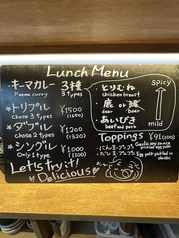 Lunch Menu
キーマカレー 3種
Keema curry 3 types
★トリプル ¥1500
chose 3 types (1650)
★ダブル ¥1200
chose 2 types (1320)
★シングル ¥1000
Only 1 type (1100)
Let's try it!
Delicious
SPicy
とりむね
chicken breast
鹿 or 猪
deer boar
あいびき
beef and pork
MILD
Toppings ¥91(100)
Garlic soy sauce
pickled egg yolk
Egg yolk pickled in